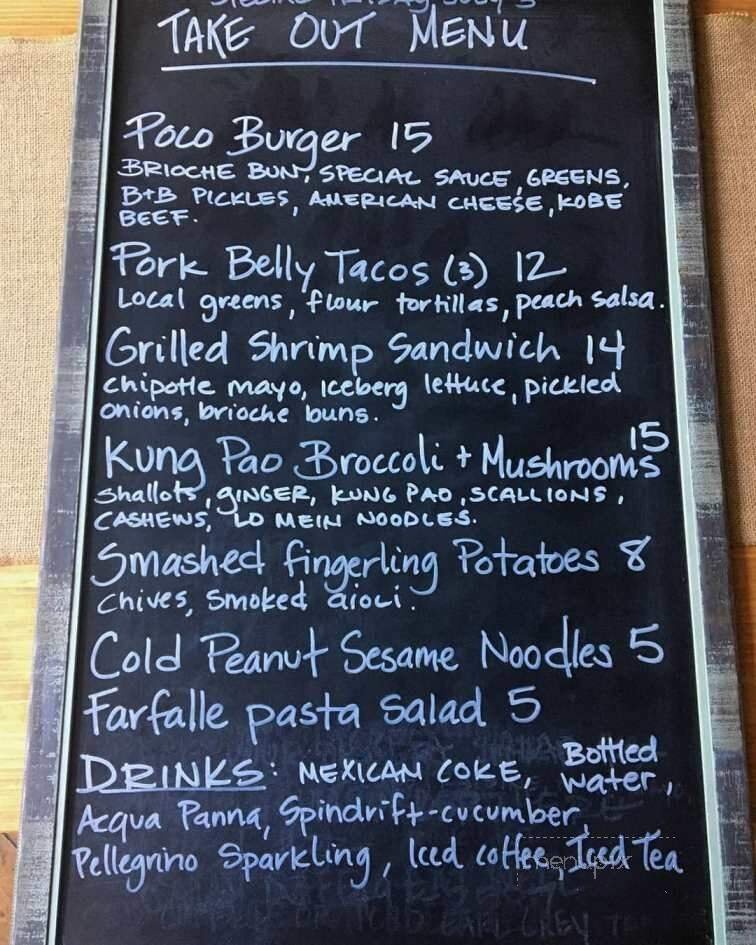 TAKE OUT MENU
Poco Burger 15
BRIOCHE BUN, SPECIAL SAUCE, GREENS,
B+B PICKLES, AMERICAN CHEESE, KOBE
BEEF.
Pork Belly Tacos (3) 12
Local greens, flour tortillas, peach salsa.
Grilled Shrimp Sandwich 14
chipotle mayo, iceberg lettuce, pickled
onions, brioche buns.
Kung Pao Broccoli + Mushrooms 15
shallots, GINGER, KUNG PAO, SCALLIONS,
CASHEWS, LO MEIN NOODLES.
Smashed fingerling Potatoes 8
Chives, Smoked aioli.
Cold Peanut Sesame Noodles 5
Farfalle pasta Salad 5
DRINKS: MEXICAN COKE, Bottled water,
Acqua Panna, Spindrift-cucumber,
Pellegrino Sparkling, Iced coffee, Iced Tea
menupix